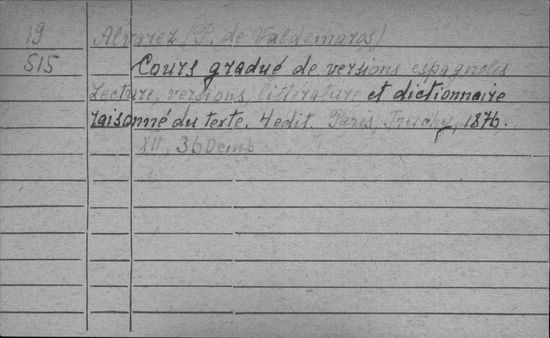 19 Alvarez (P. de Valdemoros)
515 Cours gradué de versions espagnoles
Lecture, versions, littérature et dictionnaire
raisonné du texte. 4 edit. Paris, Truchy, 1876.
XII, 360